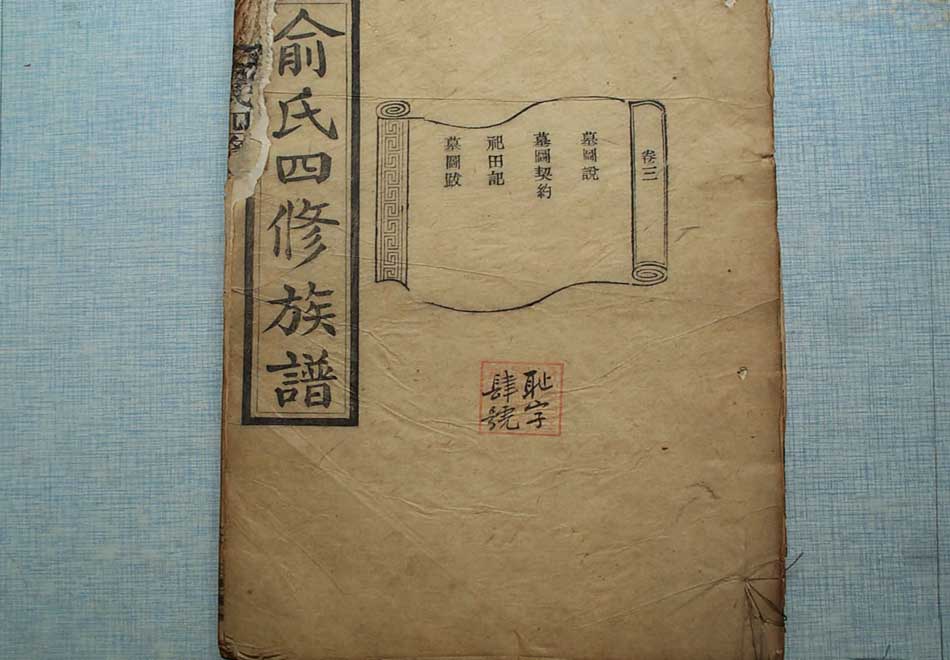 卷三
墓圖說
墓圖契約
祀田記
墓圖跋
耻字
肆號
俞氏四修族譜